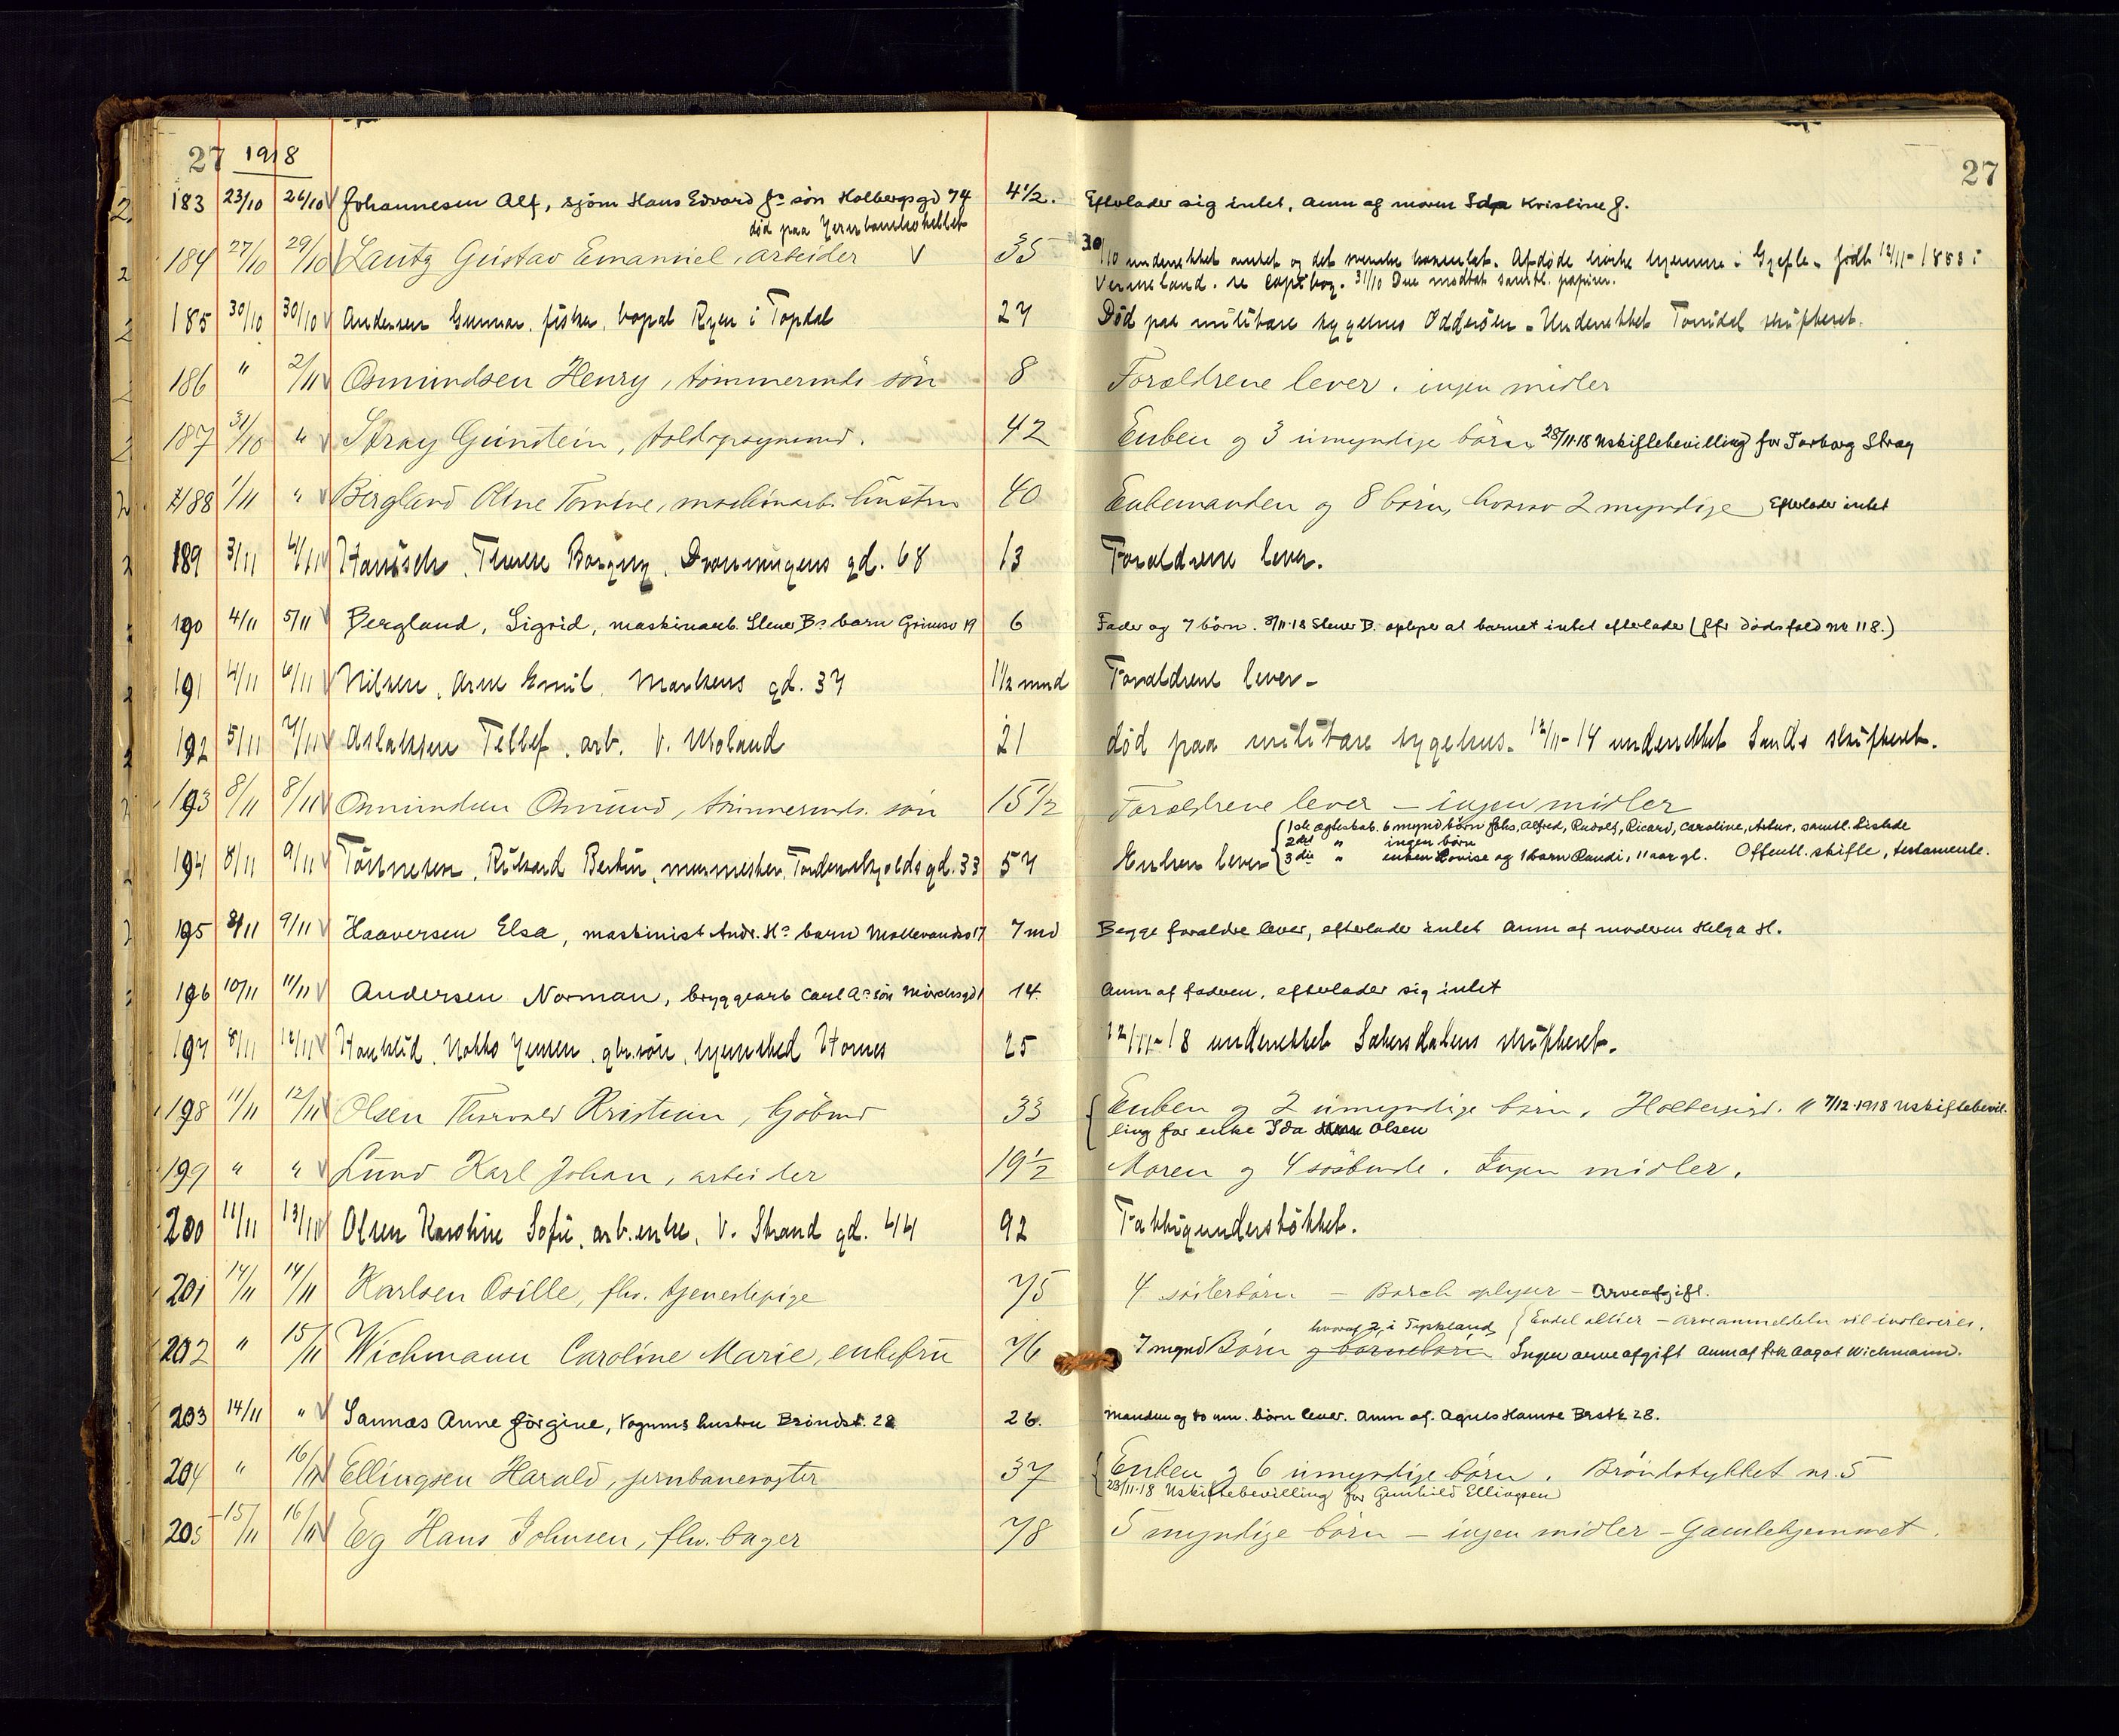 27 1918
27
183 23/10 26/10 Johannesen Alf, sjøm Hans Edvard Js søn Holbergsgd 74 4 1/2. Efterlader sig intet, Anm af moren Ida Kristine J.
død paa Jernbanehotellet
184 27/10 29/10 Lautz Gustav Emanuel, arbeider 35 30/10 underrettet amtet og det svenske konsulat. Afdøde hjemme i Gjefle. født 12/11-1883 i
Vermeland. se copibog. 31/10 modtat samtl. papirer.
185 30/10 30/10 Andersen Gunnar, fisker, bopæl Ryen i Topdal 27 Død paa militære sygehus Odderöen. Underrettet Torridal skifteret.
186 " 2/11 Osmundsen Henry, tømmermds søn 8 Forældrene lever. ingen midler
187 31/10 " Stray Gunstein, toldopsynsmd. 42 Enken og 3 umyndige børn 28/11-18 Uskiftebevilling for Torborg Stray
188 1/11 " Bergland Oline Tomine, maskinarb. hustru 40 Enkemanden og 8 børn, hvorav 2 myndige, Efterlader intet
189 3/11 4/11 Hanisch, Therese Borgny, Dronningens gd. 68 13 Forældrene lever.
190 4/11 5/11 Bergland, Sigrid, maskinarb. Stener Bs barn Grimsv 19 6 Fader og 7 børn. 8/11-18 Stener B. oplyser at barnet intet efterlader (jfr dødsfald No 118.)
191 4/11 6/11 Nilsen, Arne Emil, Markens gd. 37 1 1/2 mnd Forældrene lever.
192 5/11 7/11 Aslaksen Tellef, arb. V. Moland 21 død paa militære sygehus. 12/11-14 underrettet Sands skifteret.
193 8/11 8/11 Osmundsen Osmund, tømmermds. søn 15 1/2 Forældrene lever – ingen midler
194 8/11 9/11 Tönnesen, Rikard Bertin, murmester, Tordenskjolds gd. 33 57 Enken lever
{ 1ste ægteskab. 6 mynd børn Johs, Alfred, Rudolf, Ricard, Caroline, Artur, samtl. tilstede
2det " ingen børn
3die " enken Lovise og 1 barn Randi, 11 aar gl. Offentl. skifte, testamente.
195 8/11 9/11 Haaversen Elsa, maskinist Andr. Hs barn Møllevandsv 17 7 md Begge forældre lever, efterlader intet Anm af moderen Helga H.
196 10/11 11/11 Andersen Norman, bryggearb Carl As søn 14 Anm af faderen, efterlader sig intet
197 8/11 12/11 Haukelid, Jensen, gbr.søn, hjemsted Hornes 25 12/11-18 underrettet Sætersdalens skifteret.
198 11/11 12/11 Olsen Thorvald Kristian, sjömd 33 { Enken og 2 umyndige børn, Holbergsgd. // 7/12-1918 Uskiftebevil-
ling for enke Ida Olsen
199 " " Lund Karl Johan, arbeider 19 1/2 Moren og 4 søskende. Ingen midler.
200 11/11 13/11 Olsen Karoline Sofie, arb.enke, V. Strand gd. 44 92 Fattigunderstöttet.
201 14/11 14/11 Karlsen Osille, fhv. tjenestepige 75 4 søsterbørn – Borch oplyser – Arveafgift.
202 " 15/11 Wichmann Caroline Marie, enkefru 76 7 mynd Børn og barnebørn Ingen arveafgift Anm af frk Aagot Wichmann.
hvoraf 2 i Tyskland, { Endel aktier – arveanmeldelse vil indleveres.
203 14/11 " Sannæs Anne Jørgine, vognms hustru Brøndst. 28 26. Manden og to um. børn lever. Anm af. Agnes Hamre Brstk 28.
204 " 16/11 Ellingsen Harald, jernbanevogter 37 { Enken og 6 umyndige børn. Brøndstykket nr. 5
23/11-18 Uskiftebevilling for Gunhild Ellingsen
205 15/11 16/11 Eg Hans Johnsen, fhv. bager 78 5 myndige børn – ingen midler – Gamlehjemmet.